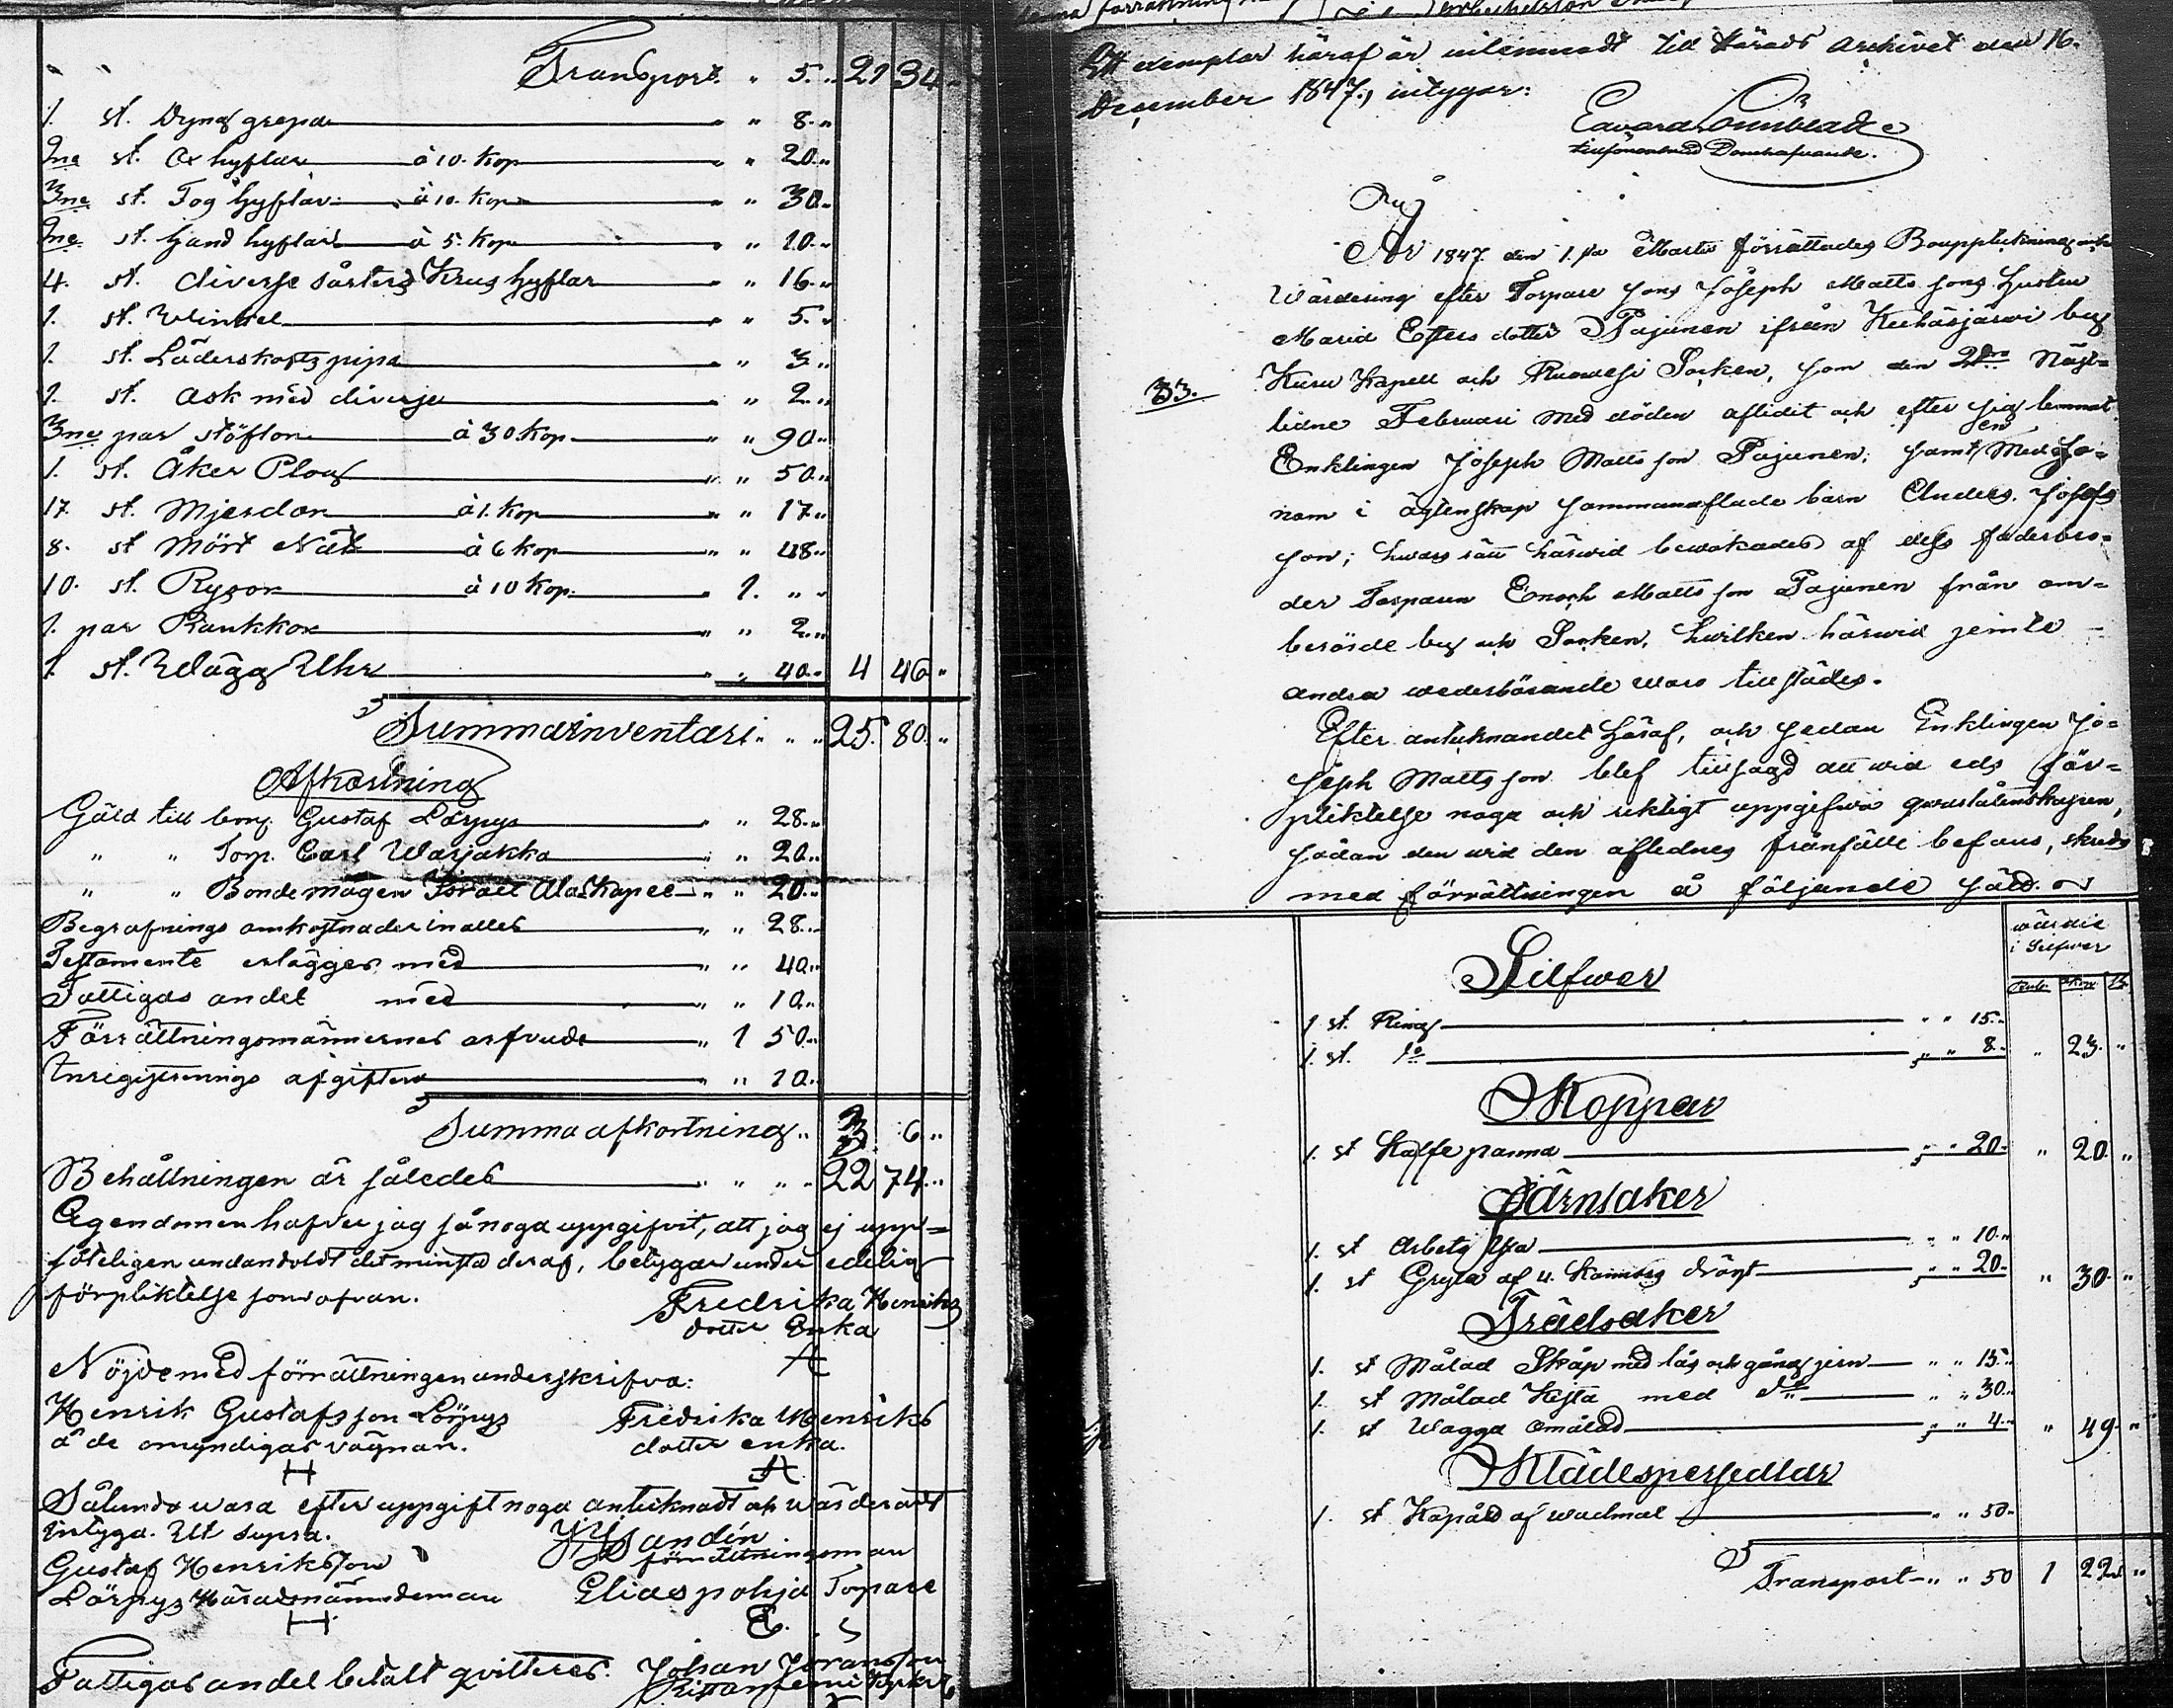 Transport. " 5. " 21 34 "
1. st. Dyng grepa " " 8. "
2ne st. Ox hyflar à 10. kop " " 20. "
3ne st. Fog hyflar à 10. kop " " 30. "
2ne st. hand hyflar à 5. kop " " 10. "
4. st. diverse sårters Krus hyflar " " 16. "
1. st. Winkel " " 5. "
1. st. Läderskofts pipa " " 3. "
1. st. Ask med diverse " " 2. "
3ne par stöflor à 30. Kop " " 90. "
1. st. Åker Plog " " 50. "
17. st. Mjerdor à 1. kop " " 17. "
8. st Mört Nät à 6 kop " " 48. "
10. st. Rysor à 10 Kop. " 1. " "
1. par Rankkor " " 2. "
1. st. Wägg Uhr " " 40. " 4 46 "
Summa inventari " " " 25. 80. "
Afkortning
Gäld till bong. Gustaf Lörpys " " 28. "
" " Torp. Carl Warjakka " " 20. "
" " Bonde mågen Israel Alaskapee " " 20. "
Begrafnings omkostnader in alles " " 28. "
Testamente erlägges med " " 40. "
Fattigas andel med " " 10. "
Förrättningsmännernes arfvude " 1 50. "
Inregistrerings afgiften " " 10. "
Summa afkortning " 3. 6 "
Behållningen är således " " " " 22 74. "
Egendomen hafver jag så noga uppgifvit, att jag ej upp=
såteligen undandoldt det minsta deraf, betygar under edelig
förpliktelse som ofvan. Fredrika Henriks
dotter Enka
A
Nöjde med förrättningen underskrifva:
Henrik Gustafsson Lörpys Fredrika Henriks
å de omyndigas vägnar. dotter enka.
H A
Sålunda vara efter uppgift noga antecknadt och wärderadt
Intyga. Ut supra. Sandin
förrättningsman
Gustaf Henriksson
Lörpys Häradsnämndeman Elias pohja Torpare
H E.
Fattigas andel betalt qvitteras. Johan Joransson
Ett exemplar häraf är inlemnadt till Härads Archivet den 16.
December 1847., intygar:
Edvard Lönnblad
tillförordnad Domhafvande.
År 1847 den 1.sta Martii förrättades Bouppteckning och
Wärdering efter Torpare Sons Joseph Matts sons hustru
Maria Esters dotter Pajunen ifrån Keihäsjärwi by
33. Kuru Kapell och Ruowesi Socken, som den 2dra näst=
lidne Februari med döden aflidit och efter sig lemnat
Enklingen Joseph Matts son Pajunen; samt en Med ho=
nom i ägtenskap sammanaflade barn Anders Josefs
son; hwars rätt härwid bewakades af dess faderbro=
der Torparen Enoch Matts son Pajunen från om=
berörde by och Socken, hwilken härwid jemte
andra wederbörande woro tillstädes.
Efter antecknandet häraf, och sedan Enklingen Jo=
seph Matts son blef tillsagd att wid eds för=
pliktelse noga och riktigt uppgifwa qwarlåtenskapen,
sådan den wid den aflednes frånfälle befans, skreds
med förrättningen å följande sätt.
wärde
i Silfwer
Rub. Kop. K.
Silfwer
1 st. Ring " " 15. "
1. st. do " " 8. " " 23. "
Koppar
1. st Kaffe panna " " 20. " 20. "
Järnsaker
1. st Arbets Yxa " " 10. "
1. st Gryta af 4. Kannors drägt " " 20. " 30. "
Trädsaker
1. st Målad Skåp med lås och gång jern " " 15. "
1. st Målad Kista med do " " 30. "
1. st Wagga omålad " " 4. " " 49. "
Klädespersedlar
1. st Kapåd af wadmal " " 50.
Transport " " 50 1 22. "